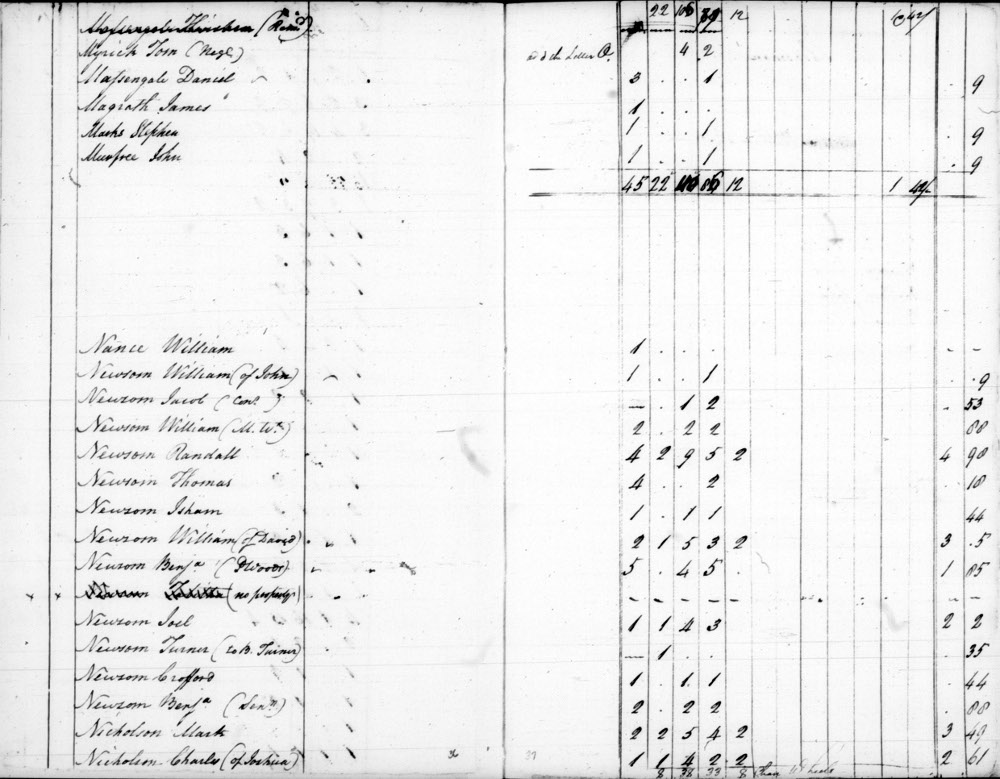 22 106 79 12
Myrick Tom (Negl) add the Letter O. 4 2
Massengale Daniel 3 . . 1 . 9
Magrath James 1 . . .
Marks Stephen 1 . . 1 . 9
Munfree John 1 . . 1 . 9
45 22 110 86 12 1 42/
Nance William 1 . . . - -
Newsom William (of John) 1 . . 1 . 9
Newsom Jacob (Con.) — . 1 2 - 53
Newsom William (M. Wt.) 2 . 2 2 88
Newsom Randall 4 2 9 5 2 4 98
Newsom Thomas 4 . . 2 . 18
Newsom Isham 1 . 1 1 44
Newsom William (of David) 2 1 5 3 2 3 . 5
Newsom Benja (P Woods) 5 . 4 5 . 1 85
Newsom (no property) - - - - - - -
Newsom Joel 1 1 4 3 2 2
Newsom Turner (to B. Turner) — 1 . 35
Newsom Crofford 1 . 1 1 . 44
Newsom Benja (Senr) 2 . 2 2 . 88
Nicholson Mark 2 2 5 4 2 3 49
Nicholson Charles (of Joshua) 1 1 4 2 2 2 61
8 38 33 8 Chair Wheels